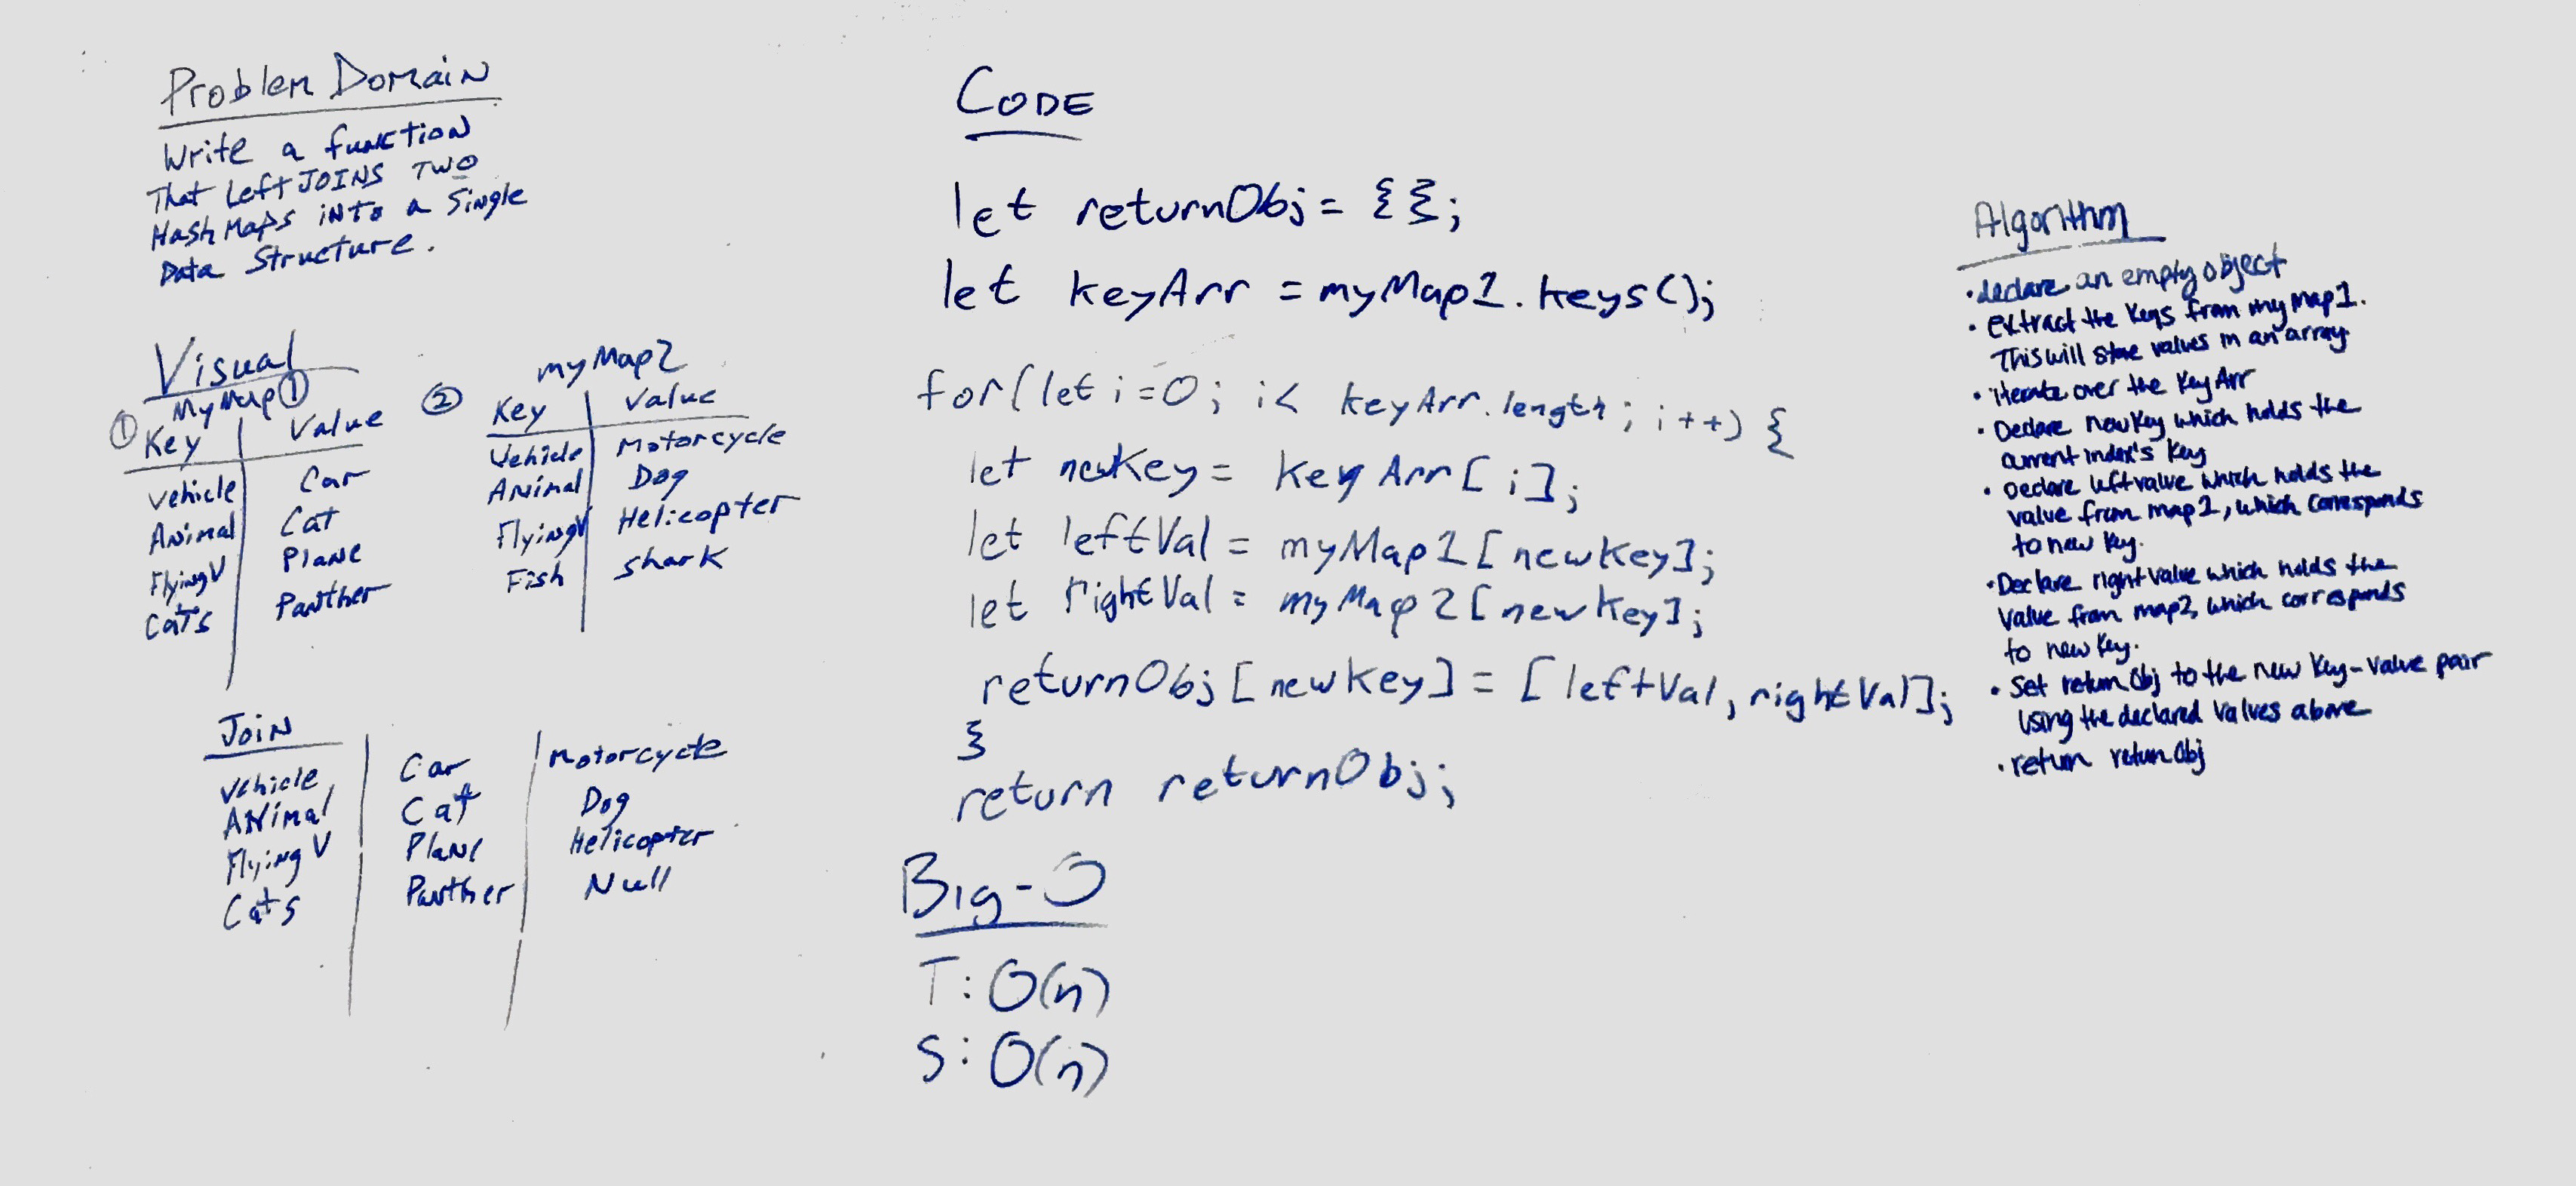 Problem Domain
Write a function
That Left JOINS TWO
Hash Maps into a Single
Data Structure.
Visual
MyMap①
①
Key Value
Vehicle Car
Animal Cat
FlyingV Plane
Cats Panther
myMap2
②
Key Value
Vehicle Motorcycle
Animal Dog
FlyingV Helicopter
Fish shark
Join
Vehicle Car Motorcycle
Animal Cat Dog
Flying V Plane Helicopter
Cats Panther Null
CODE
let returnObj = {};
let keyArr = myMap1.keys();
for(let i=0; i< keyArr.length; i++) {
let newKey = keyArr[i];
let leftVal = myMap1[newKey];
let rightVal = myMap2[newKey];
returnObj[newKey] = [leftVal, rightVal];
}
return returnObj;
Big-O
T: O(n)
S: O(n)
Algorithm
• declare an empty object
• extract the keys from my map1.
This will store values in an array
• iterate over the keyArr
• Declare newKey which holds the
current index's key
• Declare leftvalue which holds the
value from map1, which corresponds
to new key.
• Declare rightvalue which holds the
value from map2, which corresponds
to new key.
• Set returnObj to the new key-value pair
using the declared values above
• return returnObj